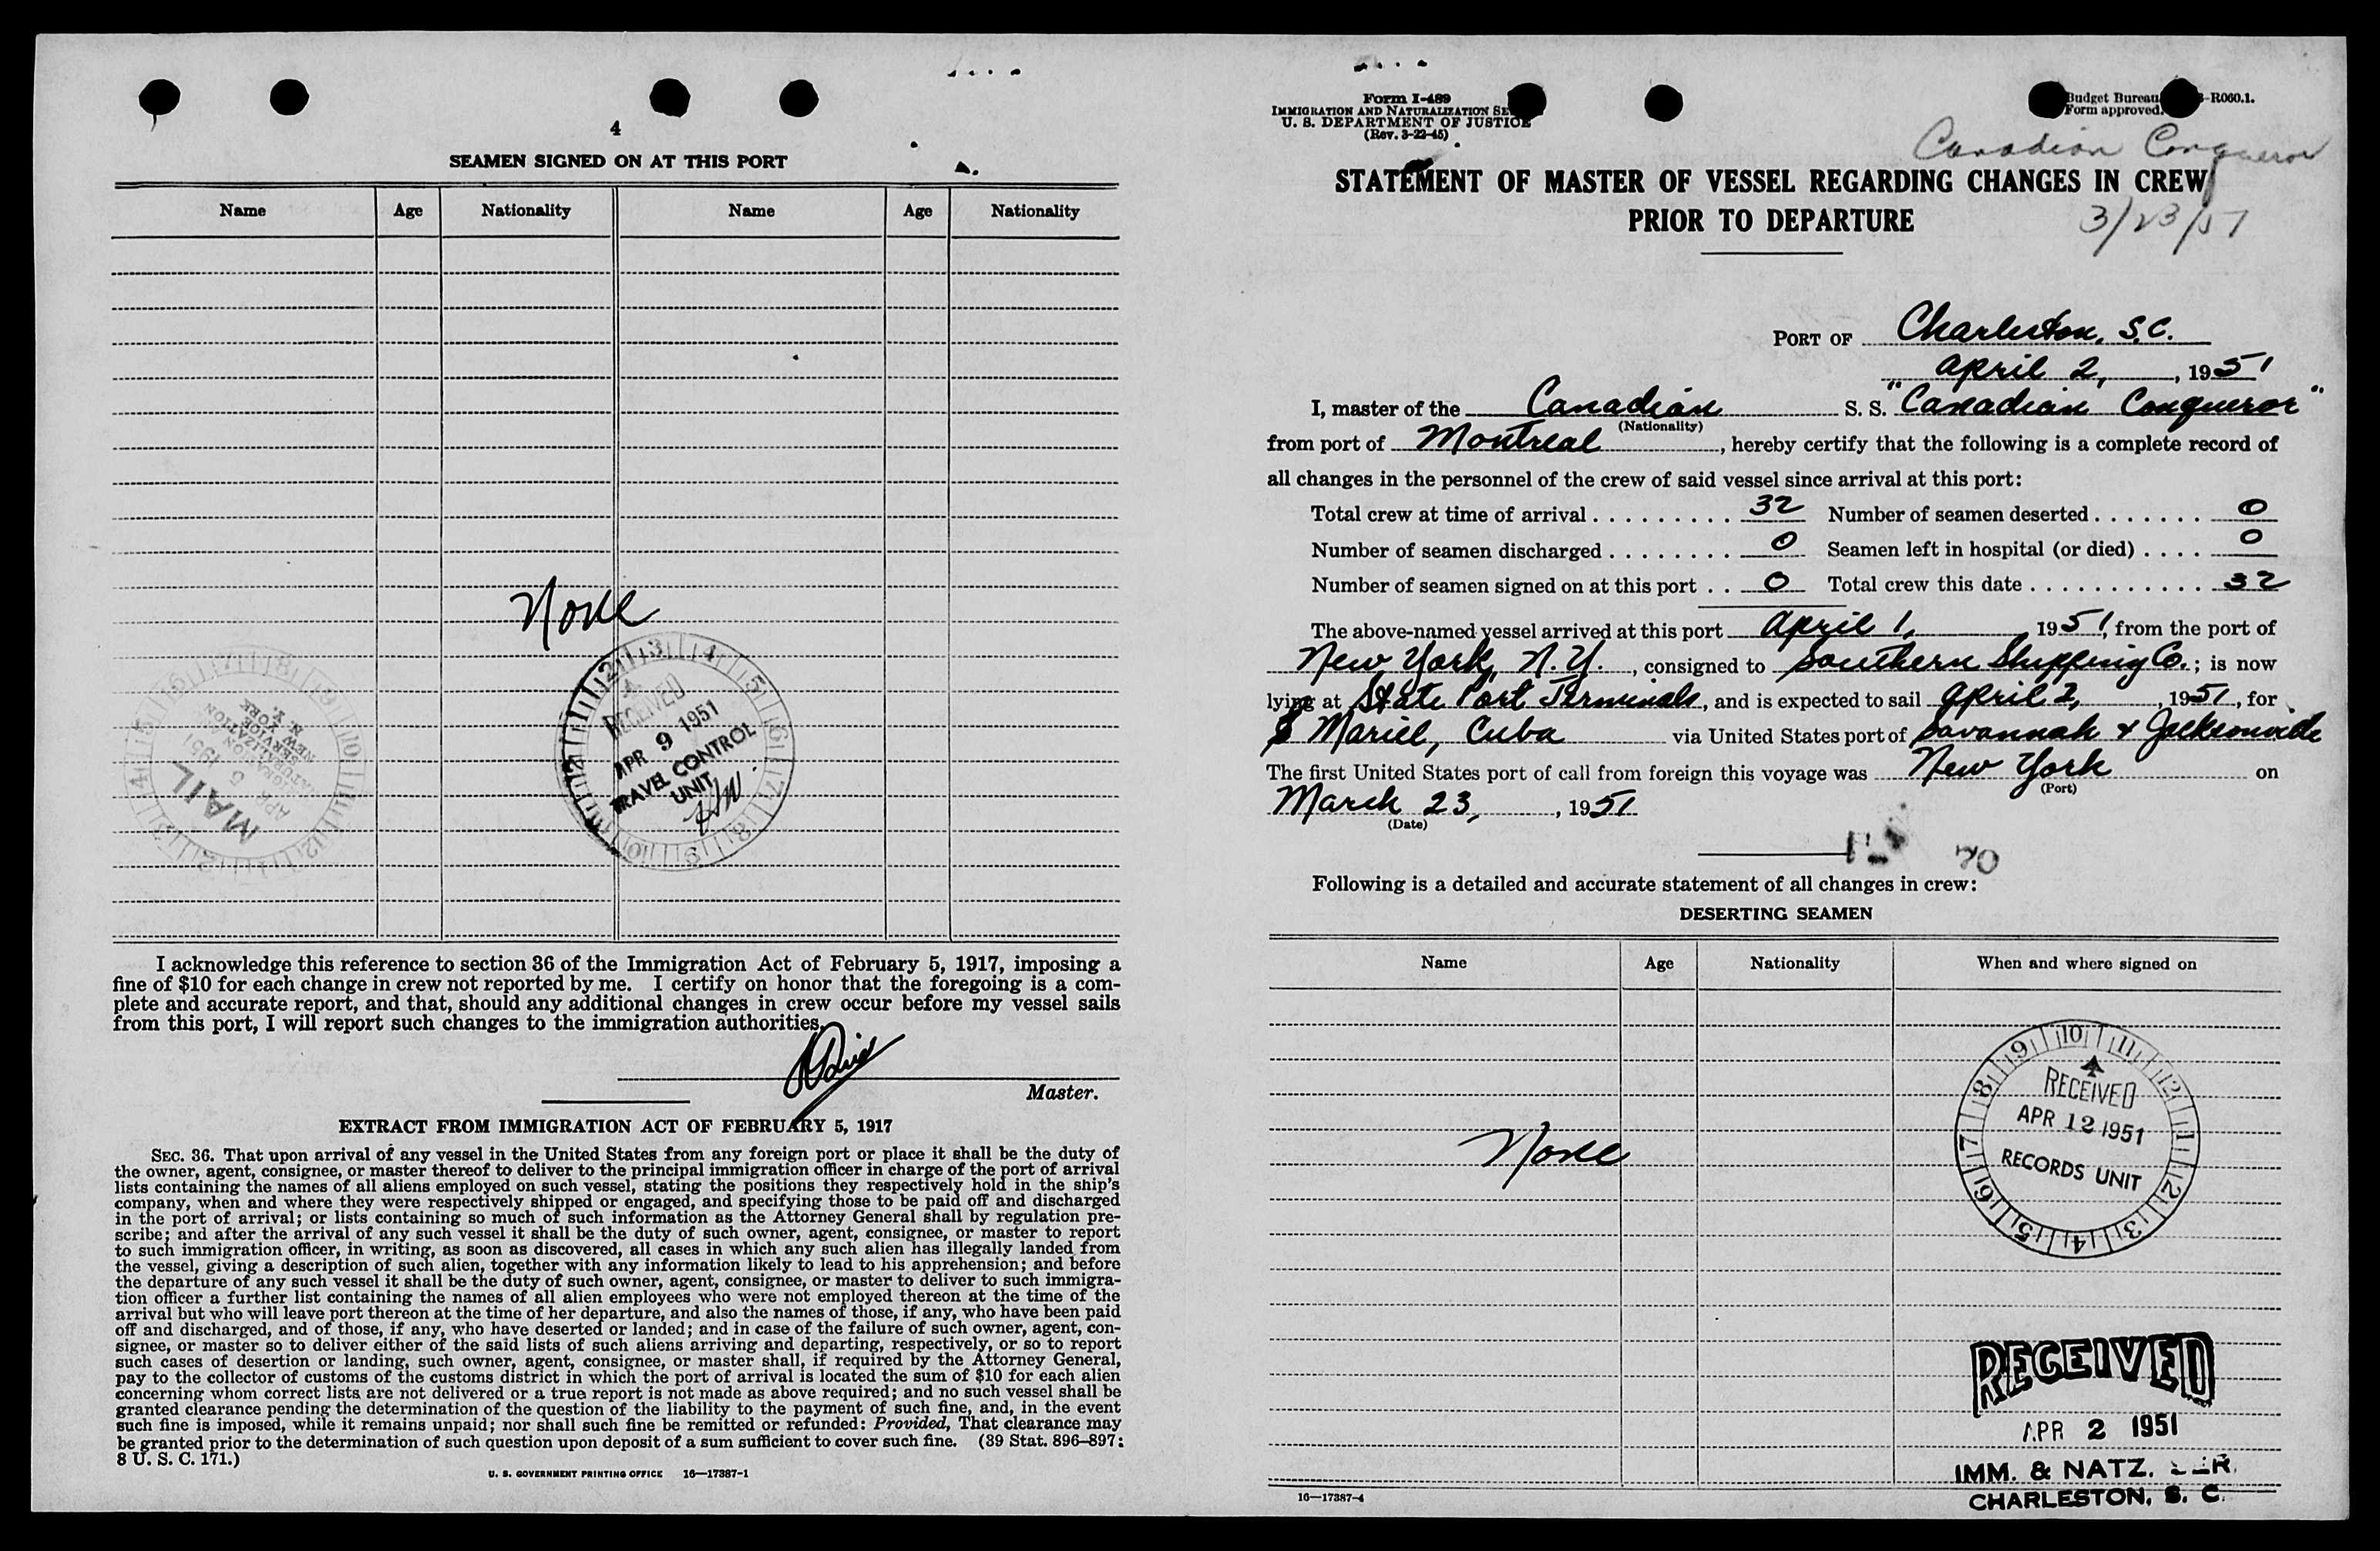 4
SEAMEN SIGNED ON AT THIS PORT
Name Age Nationality Name Age Nationality
None
MAIL
APR 5 1951
NEW YORK
N. Y.
RECEIVED
APR 9 1951
TRAVEL CONTROL
UNIT
I acknowledge this reference to section 36 of the Immigration Act of February 5, 1917, imposing a
fine of $10 for each change in crew not reported by me. I certify on honor that the foregoing is a com-
plete and accurate report, and that, should any additional changes in crew occur before my vessel sails
from this port, I will report such changes to the immigration authorities.
Master.
EXTRACT FROM IMMIGRATION ACT OF FEBRUARY 5, 1917
SEC. 36. That upon arrival of any vessel in the United States from any foreign port or place it shall be the duty of
the owner, agent, consignee, or master thereof to deliver to the principal immigration officer in charge of the port of arrival
lists containing the names of all aliens employed on such vessel, stating the positions they respectively hold in the ship's
company, when and where they were respectively shipped or engaged, and specifying those to be paid off and discharged
in the port of arrival; or lists containing so much of such information as the Attorney General shall by regulation pre-
scribe; and after the arrival of any such vessel it shall be the duty of such owner, agent, consignee, or master to report
to such immigration officer, in writing, as soon as discovered, all cases in which any such alien has illegally landed from
the vessel, giving a description of such alien, together with any information likely to lead to his apprehension; and before
the departure of any such vessel it shall be the duty of such owner, agent, consignee, or master to deliver to such immigra-
tion officer a further list containing the names of all alien employees who were not employed thereon at the time of the
arrival but who will leave port thereon at the time of her departure, and also the names of those, if any, who have been paid
off and discharged, and of those, if any, who have deserted or landed; and in case of the failure of such owner, agent, con-
signee, or master so to deliver either of the said lists of such aliens arriving and departing, respectively, or so to report
such cases of desertion or landing, such owner, agent, consignee, or master shall, if required by the Attorney General,
pay to the collector of customs of the customs district in which the port of arrival is located the sum of $10 for each alien
concerning whom correct lists are not delivered or a true report is not made as above required; and no such vessel shall be
granted clearance pending the determination of the question of the liability to the payment of such fine, and, in the event
such fine is imposed, while it remains unpaid; nor shall such fine be remitted or refunded: Provided, That clearance may
be granted prior to the determination of such question upon deposit of a sum sufficient to cover such fine. (39 Stat. 896–897;
8 U. S. C. 171.)
U. S. GOVERNMENT PRINTING OFFICE 16—17387-1
Form I-489
IMMIGRATION AND NATURALIZATION
U. S. DEPARTMENT OF JUSTICE
(Rev. 3-22-45)
Budget Bureau -R060.1.
Form approved.
Canadian Conqueror
3/23/51
STATEMENT OF MASTER OF VESSEL REGARDING CHANGES IN CREW
PRIOR TO DEPARTURE
PORT OF Charleston, S.C.
April 2, , 1951
I, master of the Canadian S. S. "Canadian Conqueror"
(Nationality)
from port of Montreal , hereby certify that the following is a complete record of
all changes in the personnel of the crew of said vessel since arrival at this port:
Total crew at time of arrival . . . . . . . . . 32 Number of seamen deserted . . . . . . . 0
Number of seamen discharged . . . . . . . . 0 Seamen left in hospital (or died) . . . . 0
Number of seamen signed on at this port . . 0 Total crew this date . . . . . . . . . . . 32
The above-named vessel arrived at this port April 1, 1951, from the port of
New York, N.Y. , consigned to Southern Shipping Co. ; is now
lying at State Port Terminals, and is expected to sail April 2, , 1951, for
Mariel, Cuba via United States port of Savannah & Jacksonville
The first United States port of call from foreign this voyage was New York on
(Port)
March 23, , 1951
(Date)
Following is a detailed and accurate statement of all changes in crew:
DESERTING SEAMEN
Name Age Nationality When and where signed on
None
RECEIVED
APR 12 1951
RECORDS UNIT
RECEIVED
APR 2 1951
IMM. & NATZ.
CHARLESTON, S. C.
16—17387-4